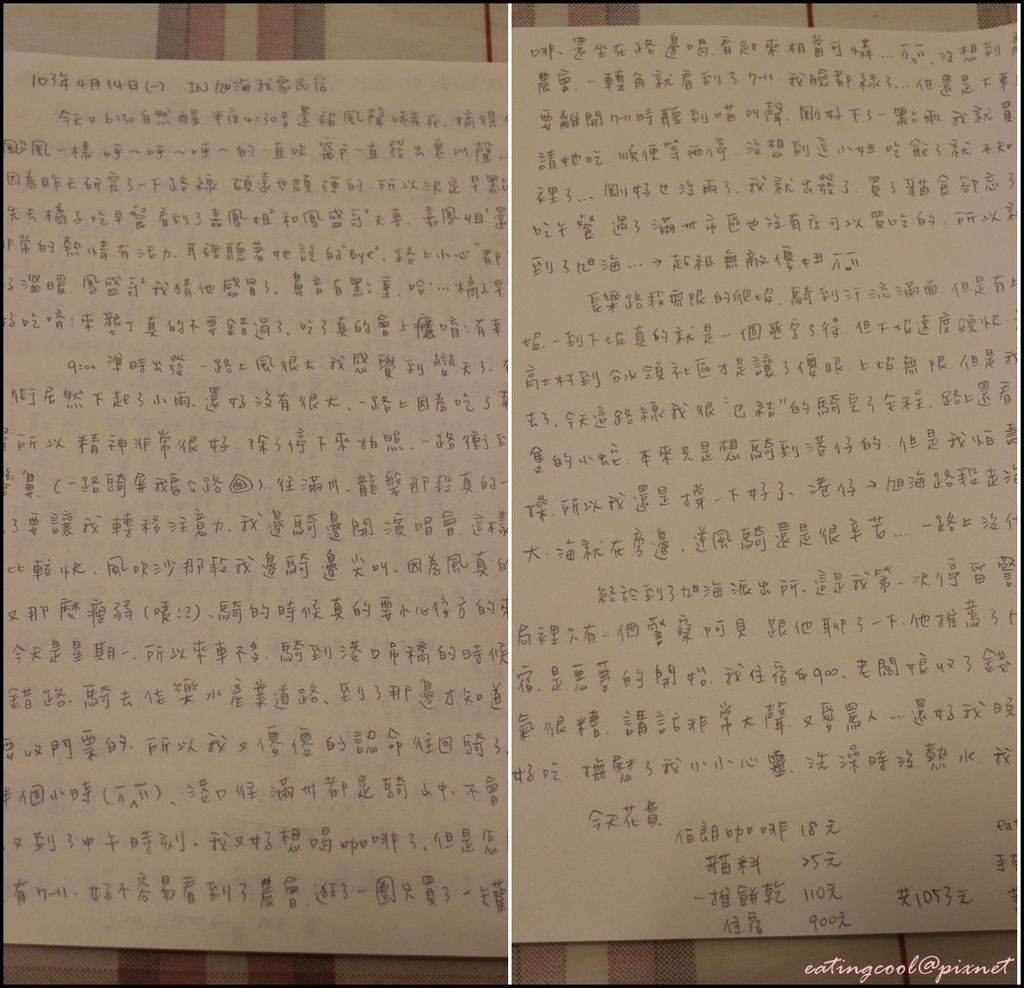 103年4月14日(一) IN 旭海我家民宿
今天又6:30自然醒,半夜4:30多還被風聲嚇死,搞得
颱風一樣 呼~呼~呼~的一直吹 窗戶一直發出鬼叫聲...
因為昨天研究了一下路線,頗遠也頗硬的,所以決定早點
先去橘子吃早餐 看到了嘉鳳姐和鳳盛哥夫妻,嘉鳳姐還
非常的熱情有活力,耳裡聽著她說的"Bye²,路上小心"都
了溫暖 鳳盛哥我猜他感冒了,鼻音有點重,哈!...橘子早
好吃唷!來墾丁真的不要錯過了,吃了真的會上癮唷!有
9:00準時出發 一路上風很大,我感覺到變天了,
街居然下起了小雨,還好沒有很大,一路上因為吃了
所以精神非常很好,除了停下來拍照,一路衝到
鼻(一路騎屏鵝公路 ).往滿州、龍磐那段真的一
了要讓我轉移注意力,我邊騎邊開演唱會,這樣
比較快,風吹沙那段我邊騎邊尖叫,因為風真的
又那麼瘦弱(咦!?),騎的時候真的要小心後方的來
今天是星期一,所以來車不多,騎到港口吊橋的時候
錯路,騎去佳樂水產業道路,到了那邊才知道
要收門票的,所以我又傻傻的認命往回騎了,
半個小時(ㄒ^ㄒ),港口往滿州都是騎山中,不會
又到了中午時刻,我又好想喝咖啡了,但是怎
有7-11,好不容易看到了農會,逛了一圈只買了一罐
啡,還坐在路邊喝,看起來相當可憐...ㄒㄒ,沒想到
農會,一轉角就看到了7-11,我臉都綠了...但還是下車
要離開7-11時聽到喵叫聲,剛好下了一點雨,我就買
請她吃,順便等雨停,沒想到這小妞吃飽了就不知
裡了...剛好也沒雨了,我就出發了,買了貓食卻忘了
吃午餐,過了滿州市區也沒有店可以買吃的,所以
到了旭海...→超級無敵傻妞ㄒㄒ
長樂路段無限的爬坡,騎到汗流滿面,但是有上
坡,一到下坡真的就是一個爽字了得,但下坡速度頗快
高士村到分水嶺社區才是讓了傻眼,上坡無限,但是我
去了,今天這路線我很"巴結"的騎完了全程,路上還看
隻的小蛇,本來只是想騎到港仔的,但是我怕
操,所以我還是撐一下好了,港仔→旭海路段走
大,海就在旁邊,逆風騎還是很辛苦....一路上沒什
終於到了旭海派出所,這是我第一次停留警
局裡只有一個警察阿貝,跟他聊了一下,他推薦了
宿,是惡夢的開始,我住宿a900,老闆娘收了錢
氣很糟,講話非常大聲,又愛罵人...還好我晚
好吃,撫慰了我小小心靈,洗澡時沒熱水,我
今天花費
伯朗咖啡 18元
貓料 25元
一推餅乾 110元 共1053元
住宿 900元
eatingcool@pixnet